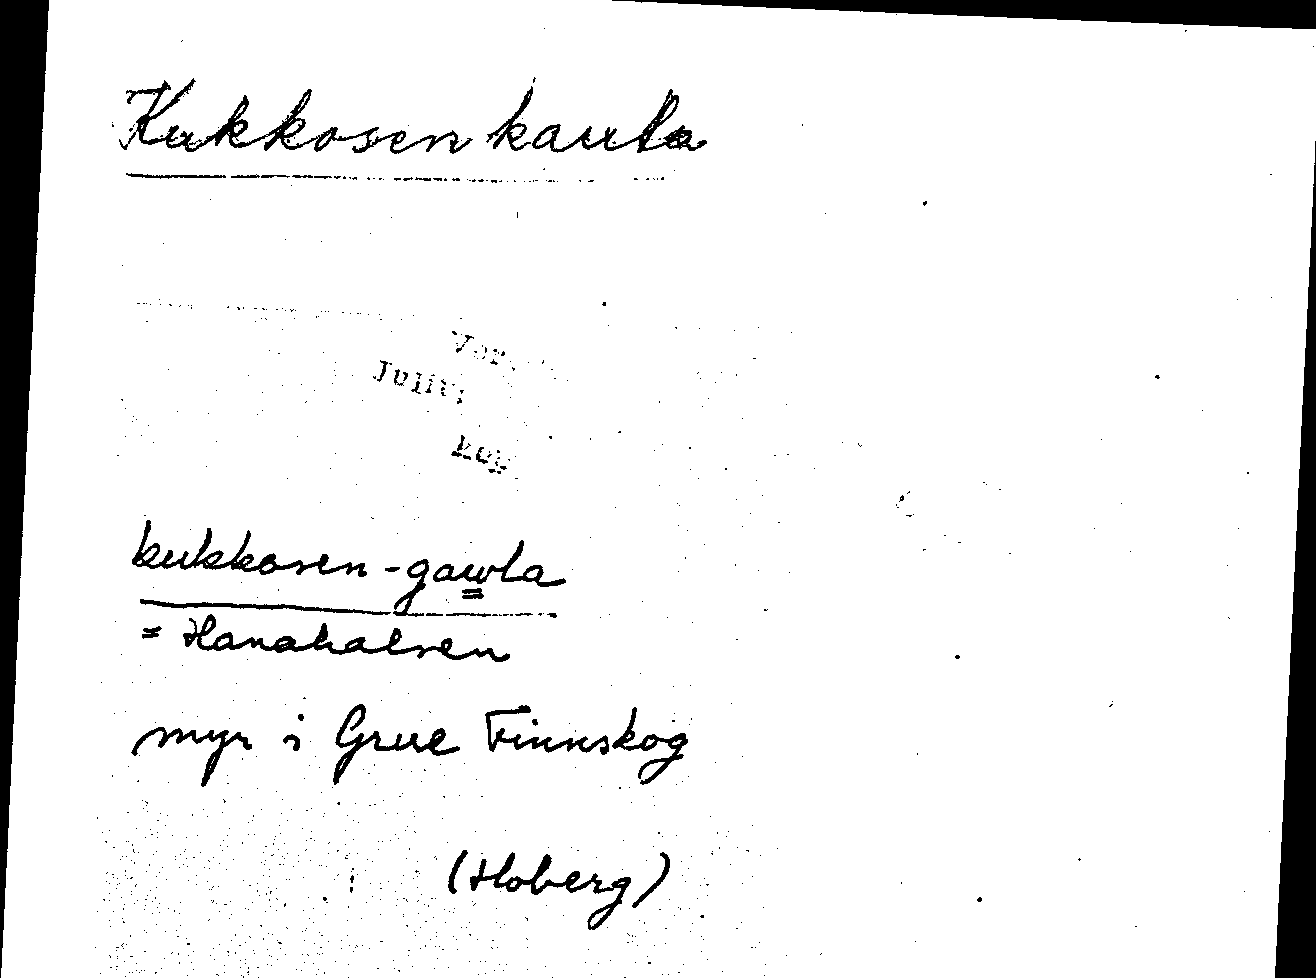 Kukkosenkaula
kukkosen-gawla
= Hanahalsen
myr i Grue Finnskog
(Hoberg)